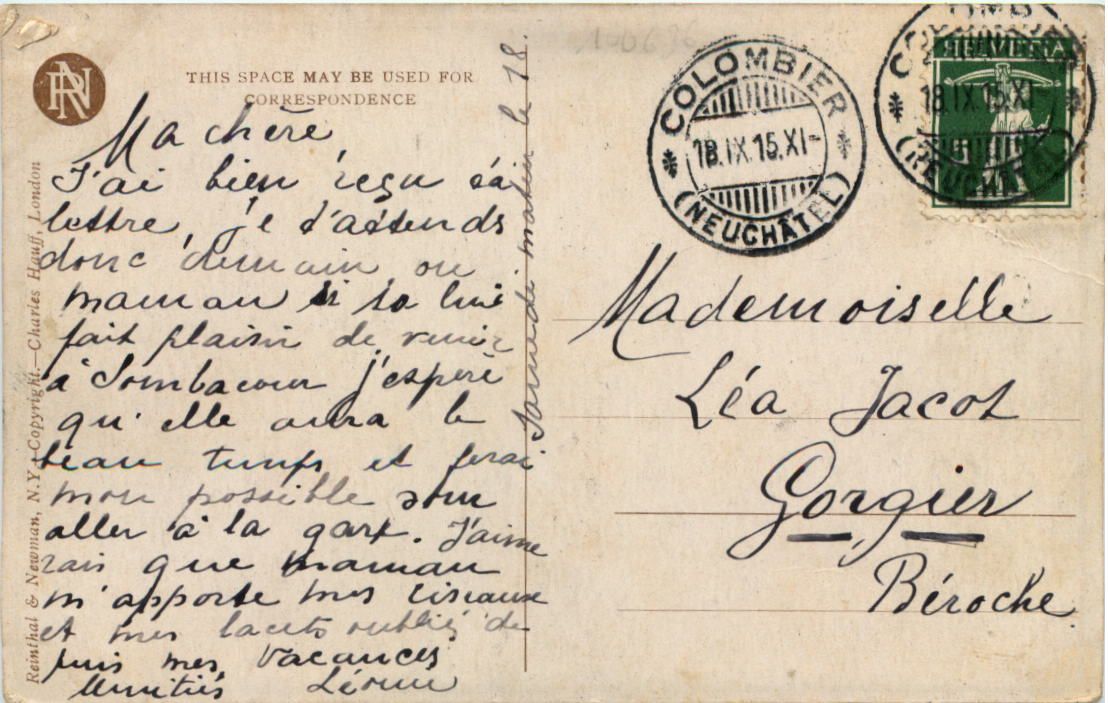 THIS SPACE MAY BE USED FOR
CORRESPONDENCE
Ma chère,
J'ai bien reçu ta
lettre, je t'attends
donc demain ou
maman si ça lui
fait plaisir de venir
à Sombacour j'espère
qu'elle aura le
beau temps et ferai
mon possible pour
aller à la gare. J'aime
rais que maman
m'apporte mes ciseaux
et mes lacets oubliés de
puis mes vacances
Amitiés Léonie
Samedi matin le 18.
Reinthal & Newman, N.Y.—Copyright.—Charles Hauff, London
RN
COLOMBIER
18.IX.15.XI-
(NEUCHÂTEL)
HELVETIA
18.IX.15.XI
(NEUCHÂTEL)
Mademoiselle
Léa Jacot
Gorgier
Béroche